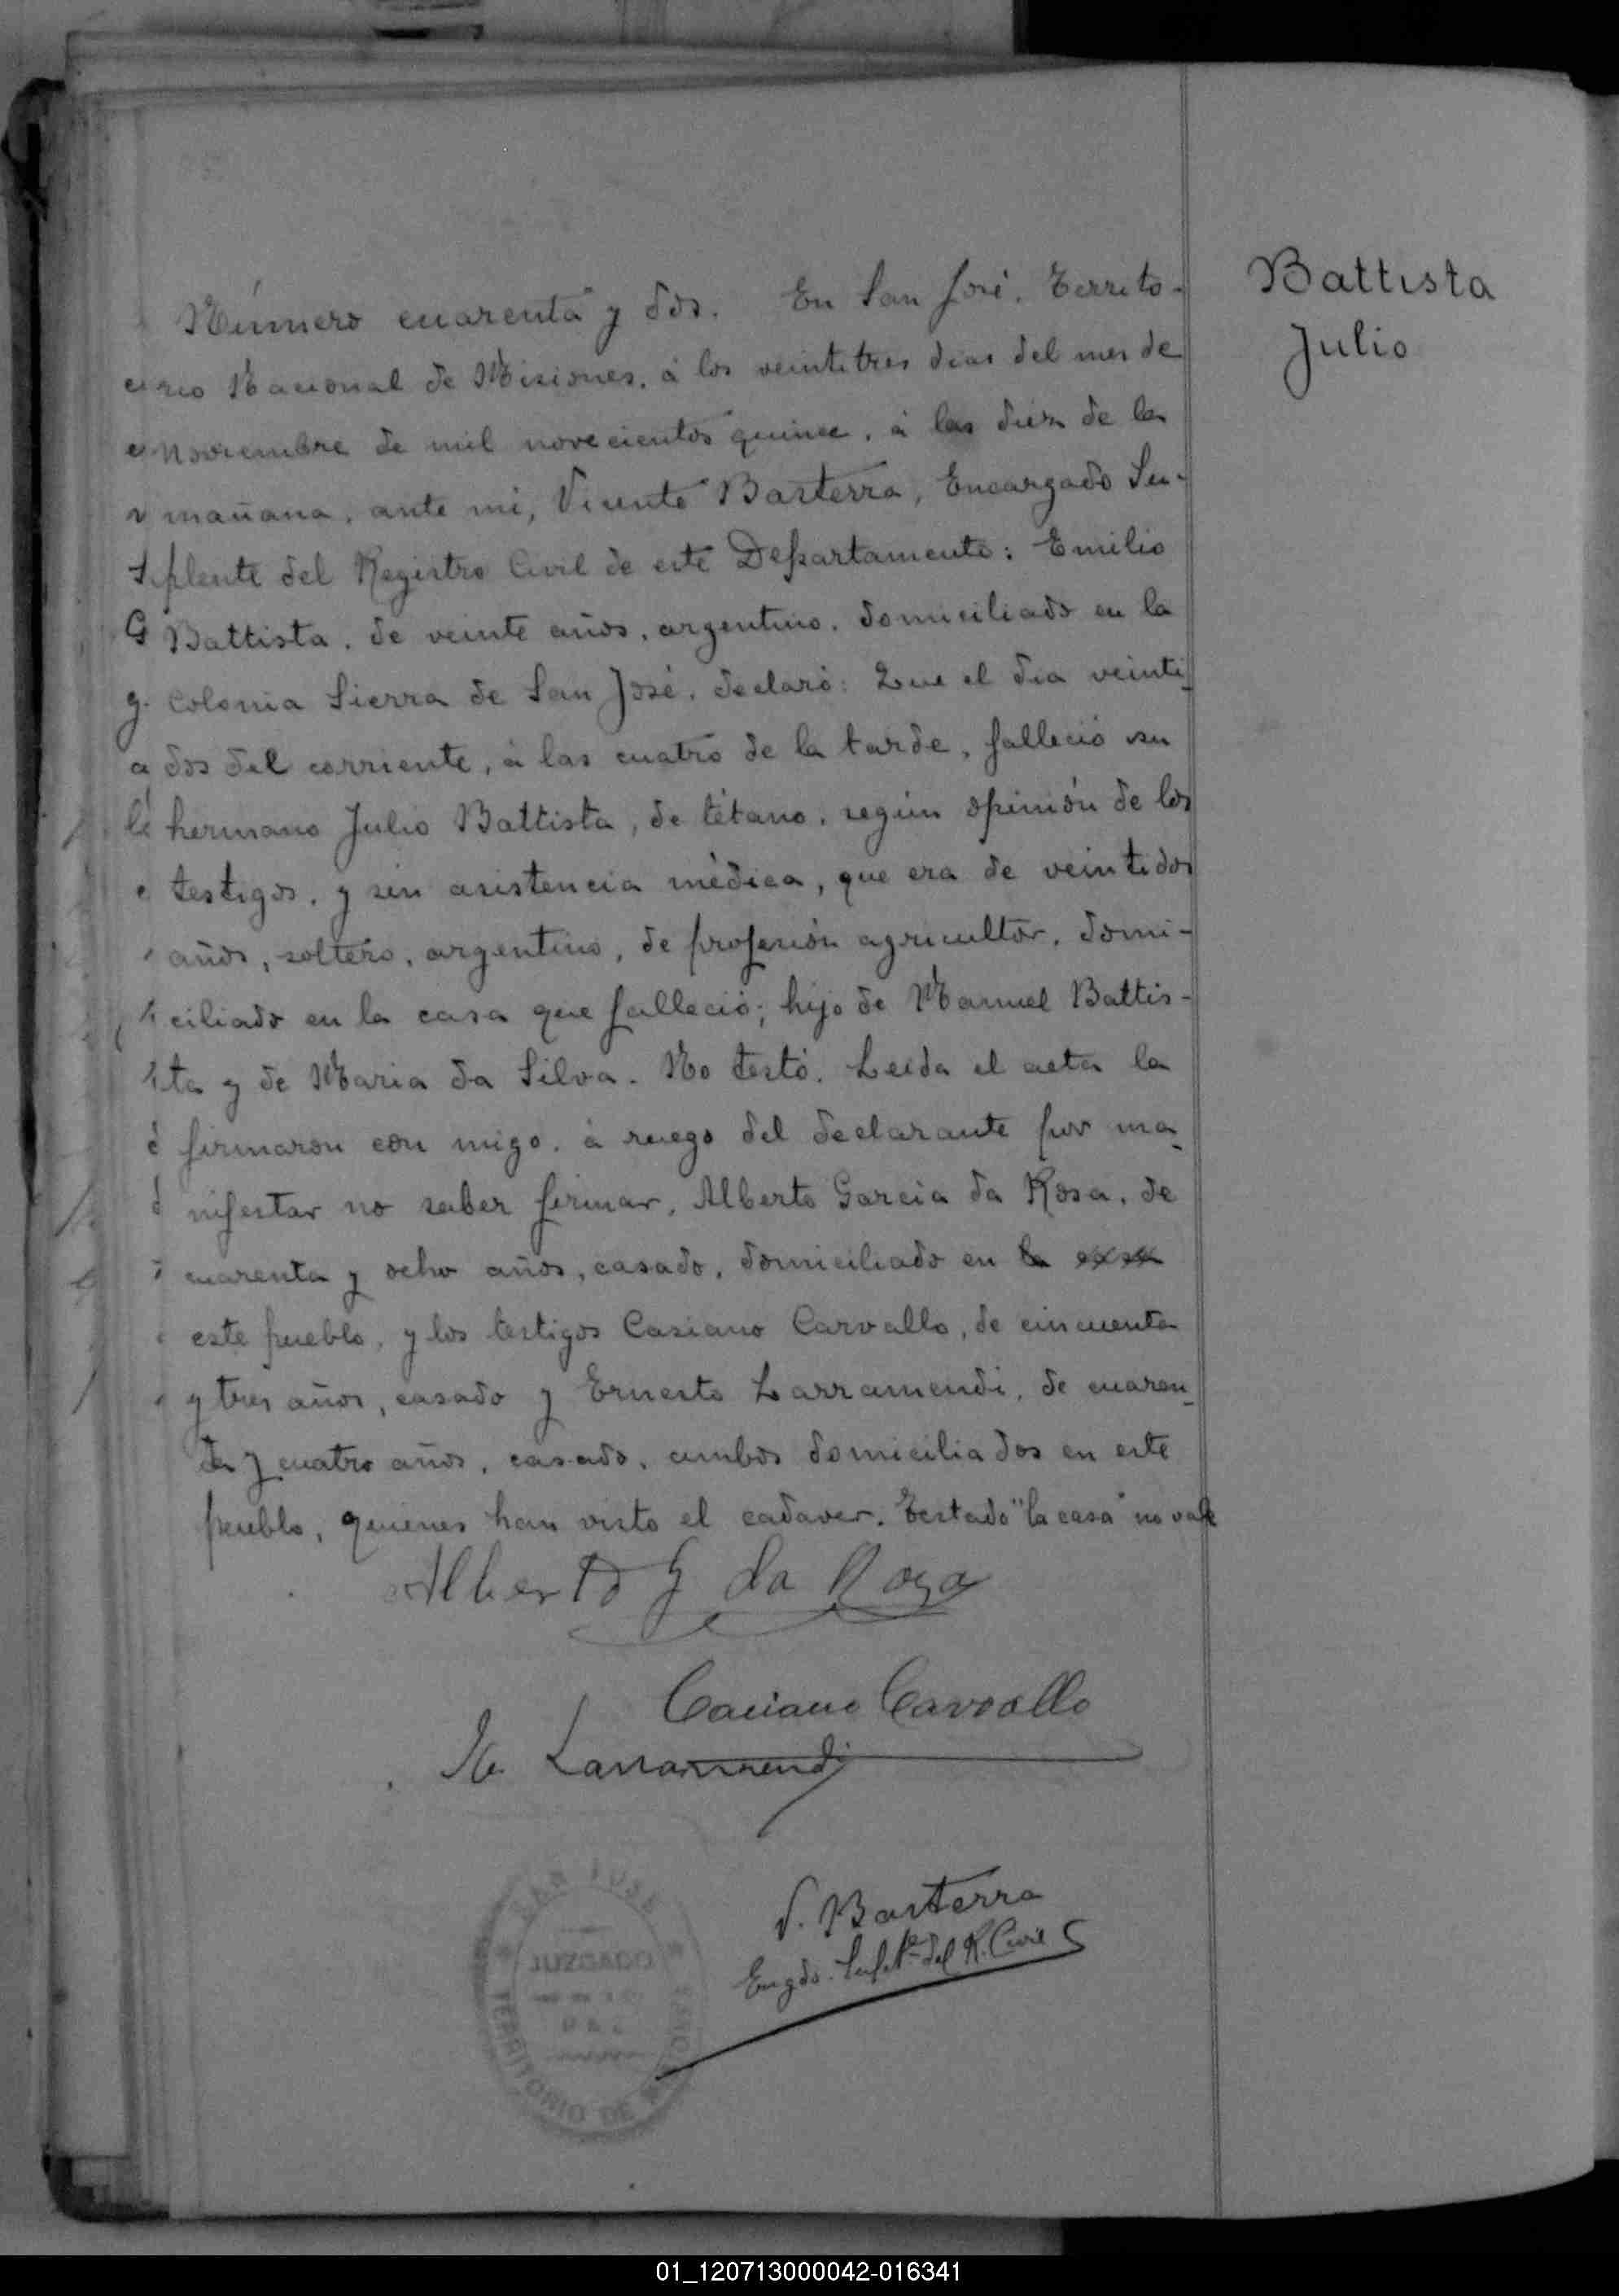 Battista
Julio
Número cuarenta y dos. En San José, Territo-
rio Nacional de Misiones, à los veintitres dias del mes de
Noviembre de mil novecientos quince, à las diez de la
mañana, ante mi, Vicente Basterra, Encargado Su-
plente del Registro Civil de este Departamento: Emilio
Battista, de veinte años, argentino, domiciliado en la
Colonia Sierra de San José, declaró: Que el dia veinti-
dos del corriente, à las cuatro de la tarde, falleció su
hermano Julio Battista, de tétano, según opinión de los
testigos, y sin asistencia médica, que era de veintidos
años, soltero, argentino, de profesión agricultor, domi-
ciliado en la casa que falleció; hijo de Manuel Battis-
ta y de Maria da Silva. No testó. Leida el acta la
firmaron con migo, à ruego del declarante por ma-
nifestar no saber firmar, Alberto Garcia da Rosa, de
cuarenta y ocho años, casado, domiciliado en la casa
este pueblo, y los testigos Casiano Carvallo, de cincuenta
y tres años, casado y Ernesto Larramendi, de cuaren-
ta y cuatro años, casado, ambos domiciliados en este
pueblo, quienes han visto el cadaver. Testado "la casa" no vale
Alberto G da Roza
Caciano Carvallo
Larramendi
V. Basterra
Engdo. Suplte. del R. Civil
SAN JOSE
JUZGADO
DE
PAZ
TERRITORIO DE MISIONES
01_120713000042-016341